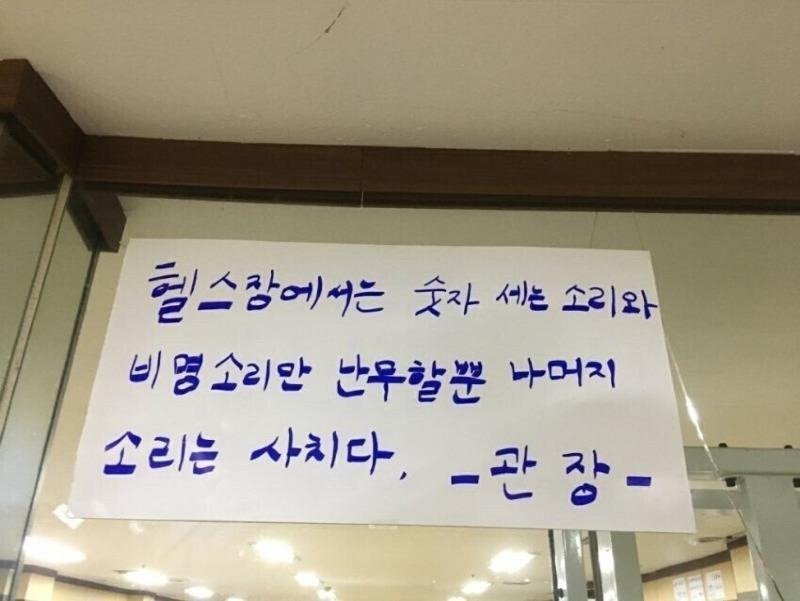 헬스장에서는 숫자 세는 소리와
비명소리만 난무할뿐 나머지
소리는 사치다. -관장-